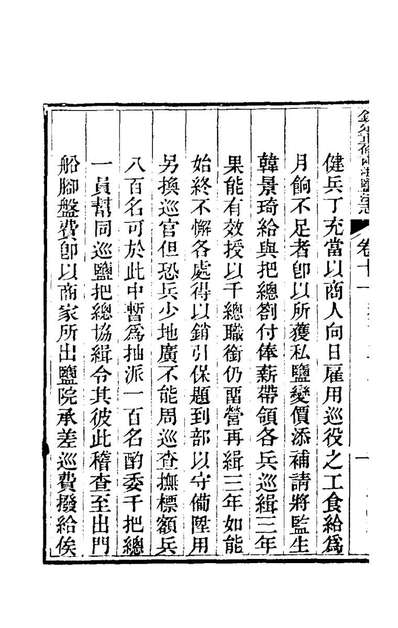 健兵丁充當以商人向日雇用巡役之工食給爲
月餉不足者卽以所獲私鹽變價添補請將監生
韓景琦給與把總劄付俸薪帶領各兵巡緝三年
果能有效授以千總職銜仍留營再緝三年如能
始終不懈各處得以銷引保題到部以守備陞用
另換巡官但恐兵少地廣不能周巡查撫標額兵
八百名可於此中暫爲抽派一百名酌委千把總
一員幫同巡鹽把總協緝令其彼此稽查至出門
船腳盤費卽以商家所出鹽院承差巡費撥給俟